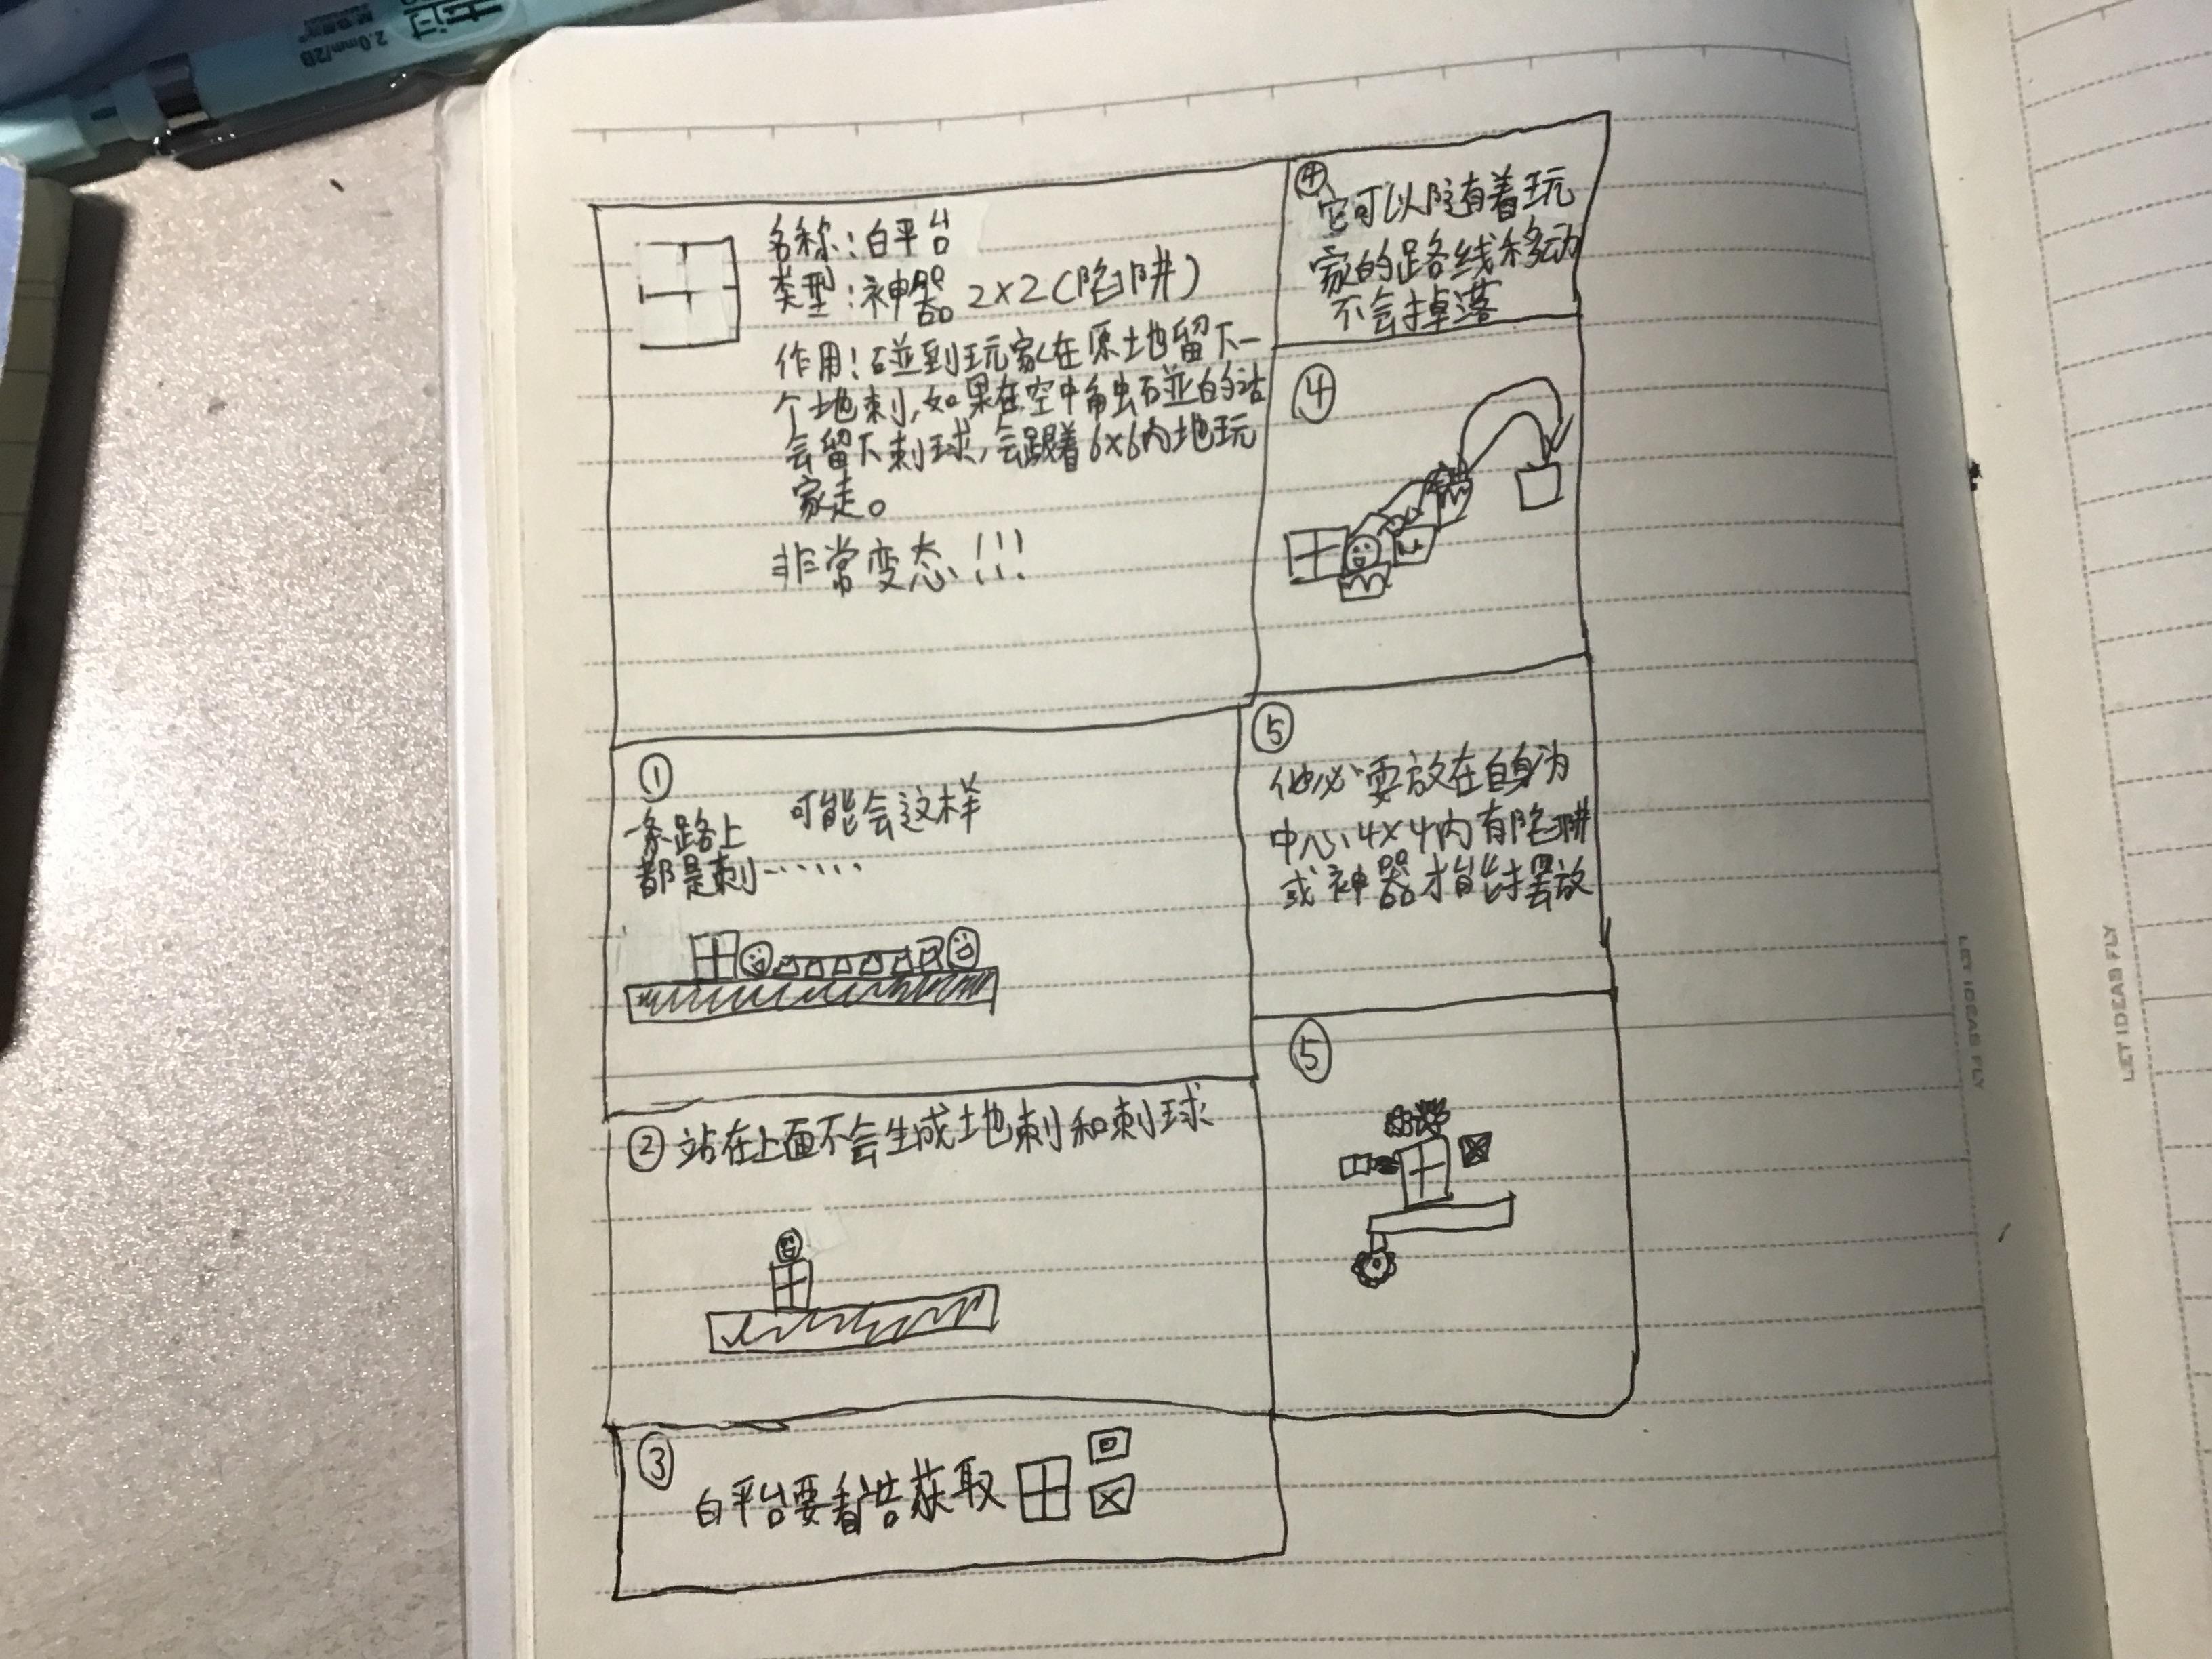 名称：白平台
类型：神器 2×2（陷阱）
作用！碰到玩家在原地留下一
个地刺，如果在空中触碰的话
会留下刺球，会跟着6×6内地玩
家走。
非常变态！！！
①
一条路上
都是刺……
可能会这样
② 站在上面不会生成地刺和刺球
③
白平台要看告获取
④
它可以随着玩
家的路线移动
不会掉落
④
⑤
他必要放在自身为
中心4×4内有陷阱
或神器才能摆放
⑤
2.0mm/2B
LET IDEAS FLY
LET IDEAS FLY